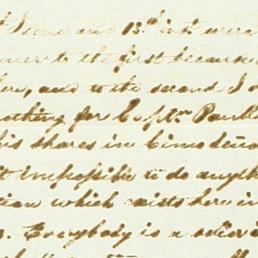 June and 13th inst were
to the first because
, and to the second I
nothing for Capt. Paul
his shares in Cimodeña
impossible to do anyth
tion which exists here in
. Everybody is a